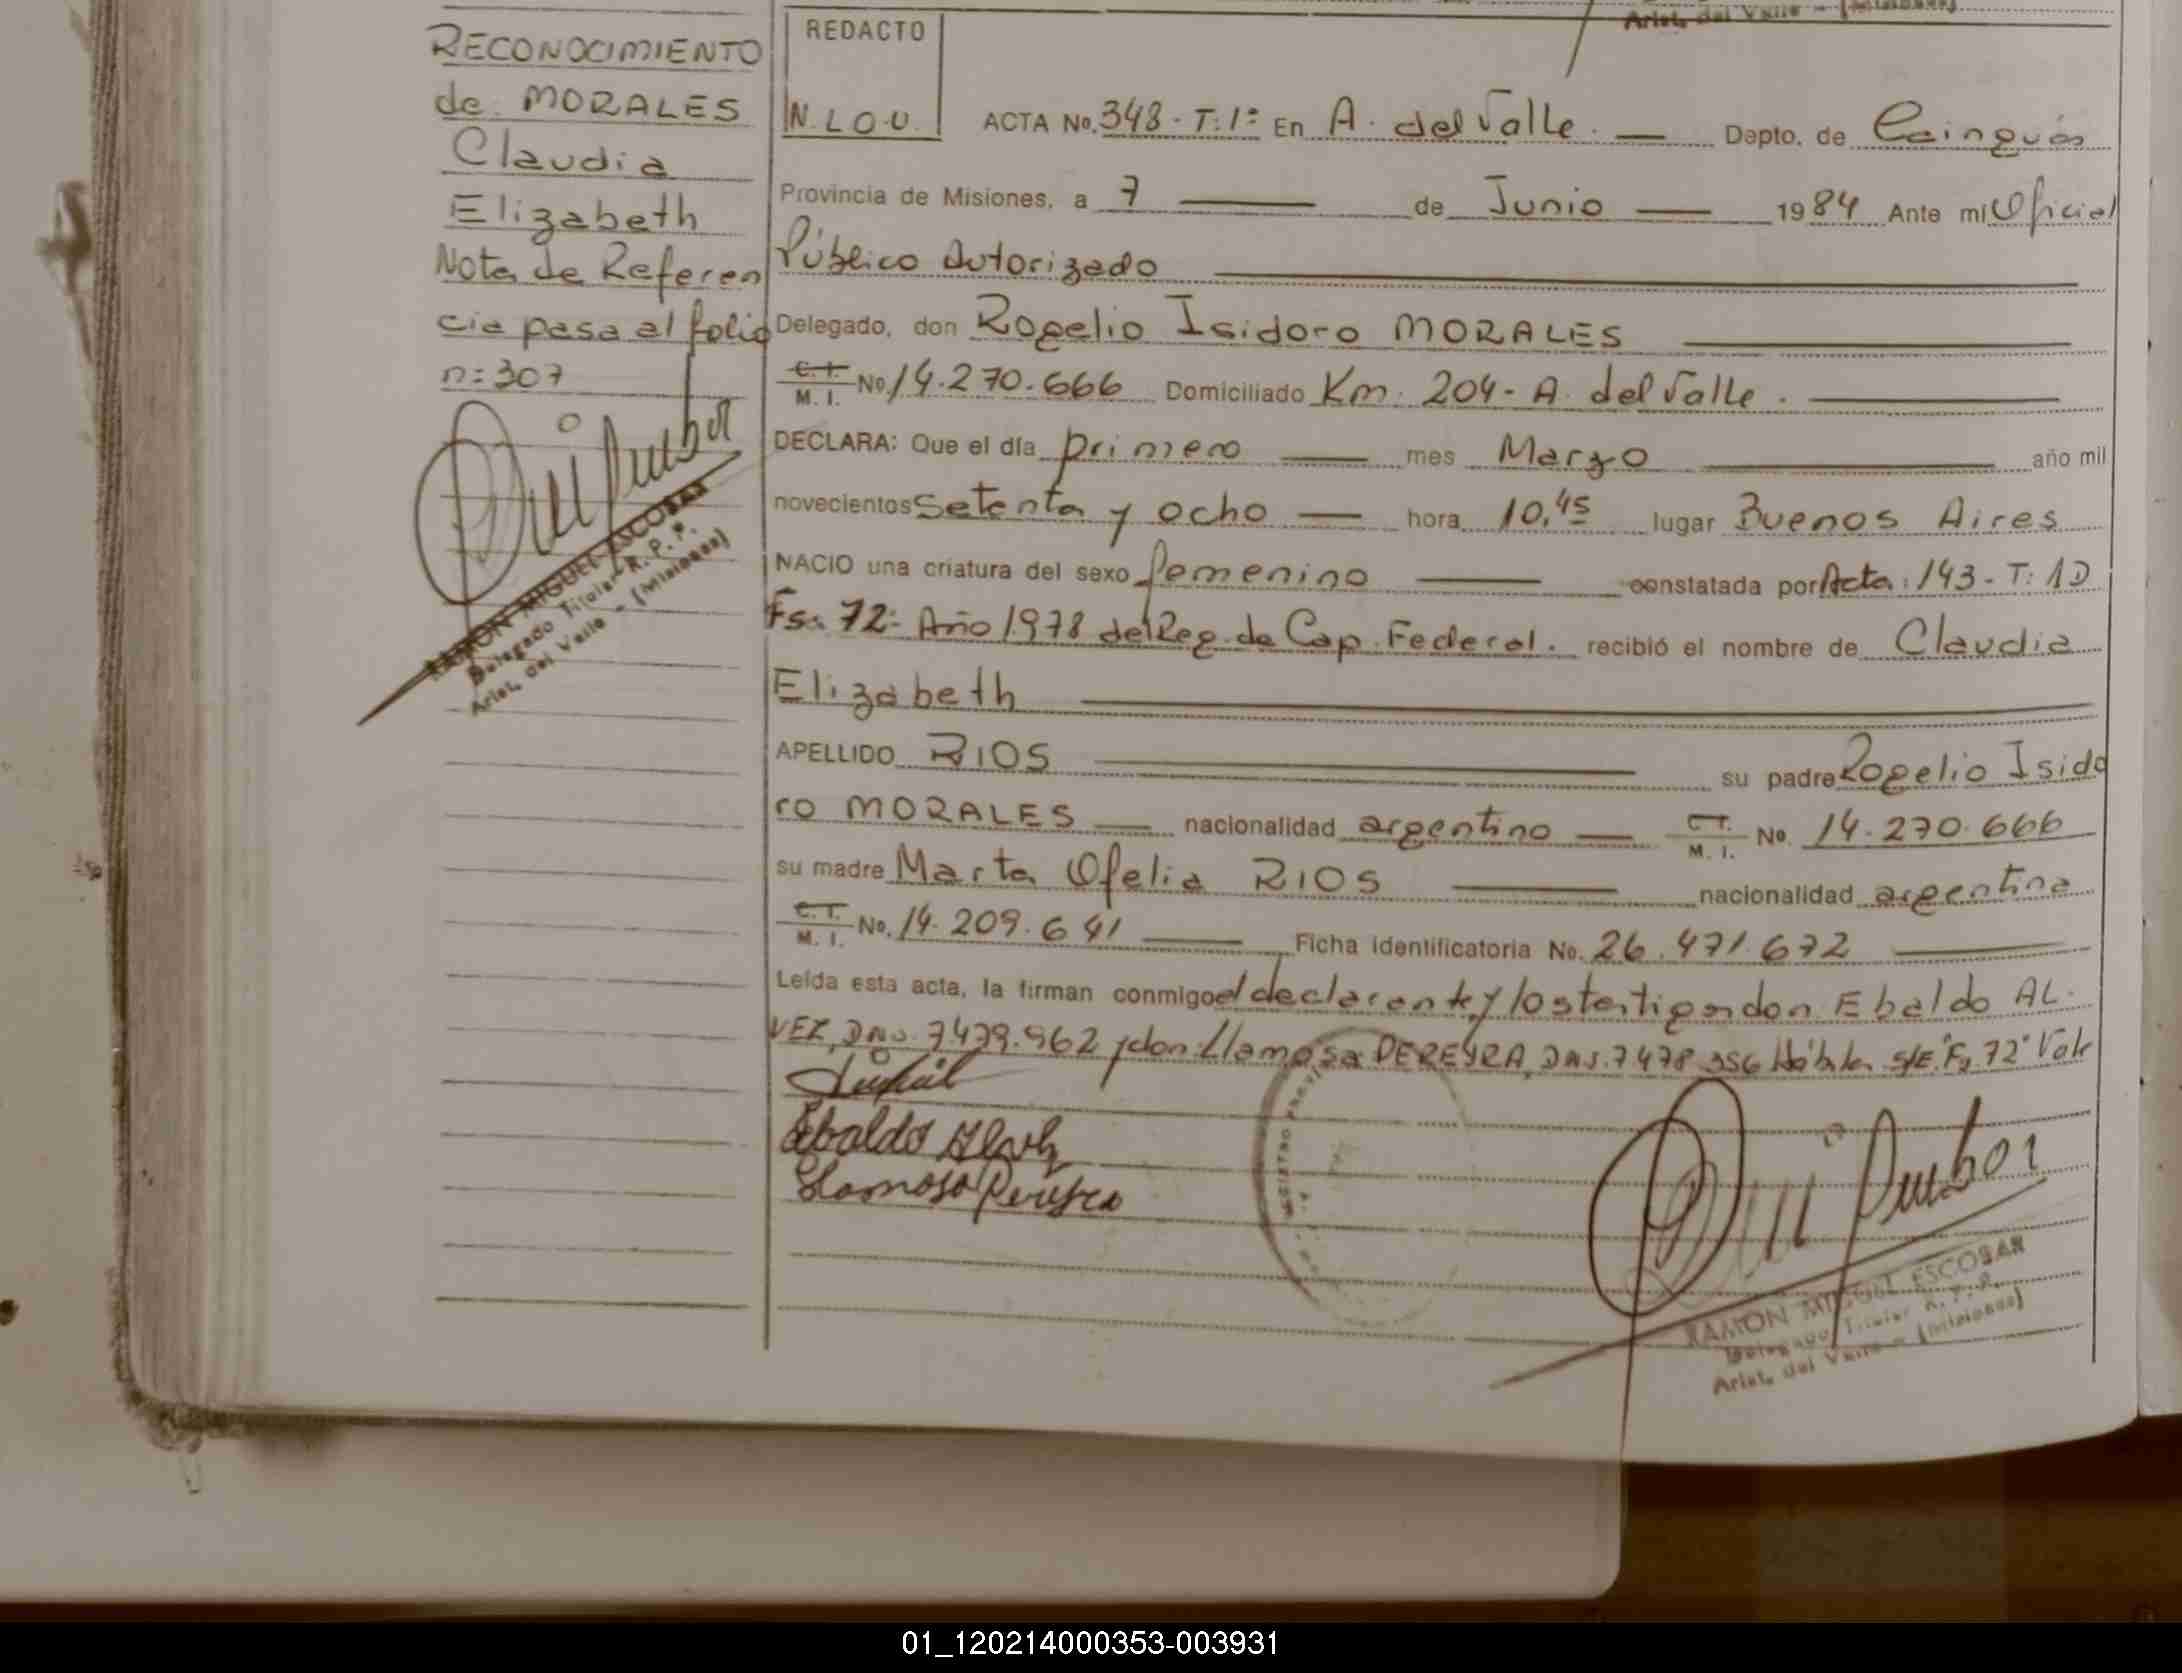 Arist. del Valle - (Misiones)
RECONOCIMIENTO
de MORALES
Claudia
Elizabeth
Nota de Referen
cia pasa al folio
n: 307
RAMON MIGUEL ESCOBAR
Delegado Titular R. P. P.
Arist. del Valle - (Misiones)
REDACTO
N. L O. U.
ACTA No. 348 - T: 1º En A. del Valle. — Depto. de Cainguás
Provincia de Misiones, a 7 — de Junio — 1984 Ante mi Oficial
Público Autorizado
Delegado, don Rogelio Isidoro MORALES
C. I. M. I. No 14.270.666 Domiciliado Km. 204 - A. del Valle.
DECLARA: Que el día primero — mes Marzo — año mil
novecientos setenta y ocho — hora 10,45 lugar Buenos Aires
NACIO una criatura del sexo femenino — constatada por Acta: 143 - T: 1D
Fs: 72: Año 1978 del Reg. de Cap. Federal. recibió el nombre de Claudia
Elizabeth
APELLIDO RIOS — su padre Rogelio Isido
ro MORALES — nacionalidad argentino — C. I. M. I. No. 14.270.666
su madre Marta Ofelia RIOS — nacionalidad argentina
C. I. M. I. No. 14.209.641 — Ficha identificatoria No. 26.471.672
Leída esta acta, la firman conmigo el declarante y los testigos don Ebaldo AL-
VEZ, DNJ. 7479.962 y don Llamosa PEREYRA, DNJ. 7478 356 Hábiles s/E. "Fs 72" Vale
Ebaldo Alvez
Llamosa Pereyra
RAMON MIGUEL ESCOBAR
Delegado Titular R. P. P.
Arist. del Valle - (Misiones)
01_120214000353-003931